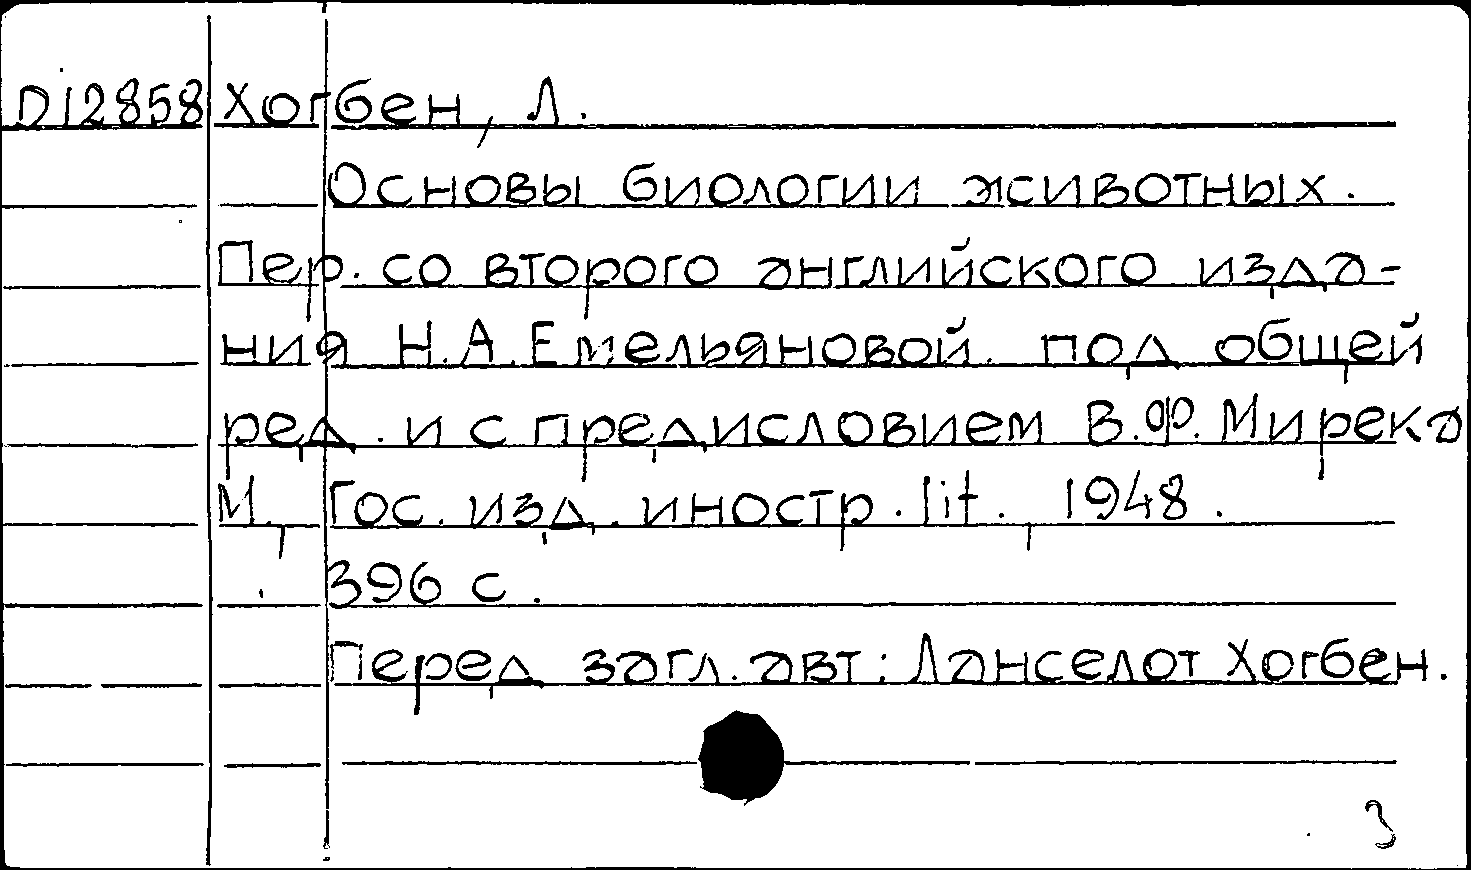 D12858 Хогбен, Л.
Основы биологии животных.
Пер. со второго английского изда-
ния Н.А.Емельяновой. под общей
ред. и с предисловием В.Ф.Мирека
М., Гос. изд. иностр. lit., 1948.
396 с.
Перед загл. авт: Ланселот Хогбен.
3